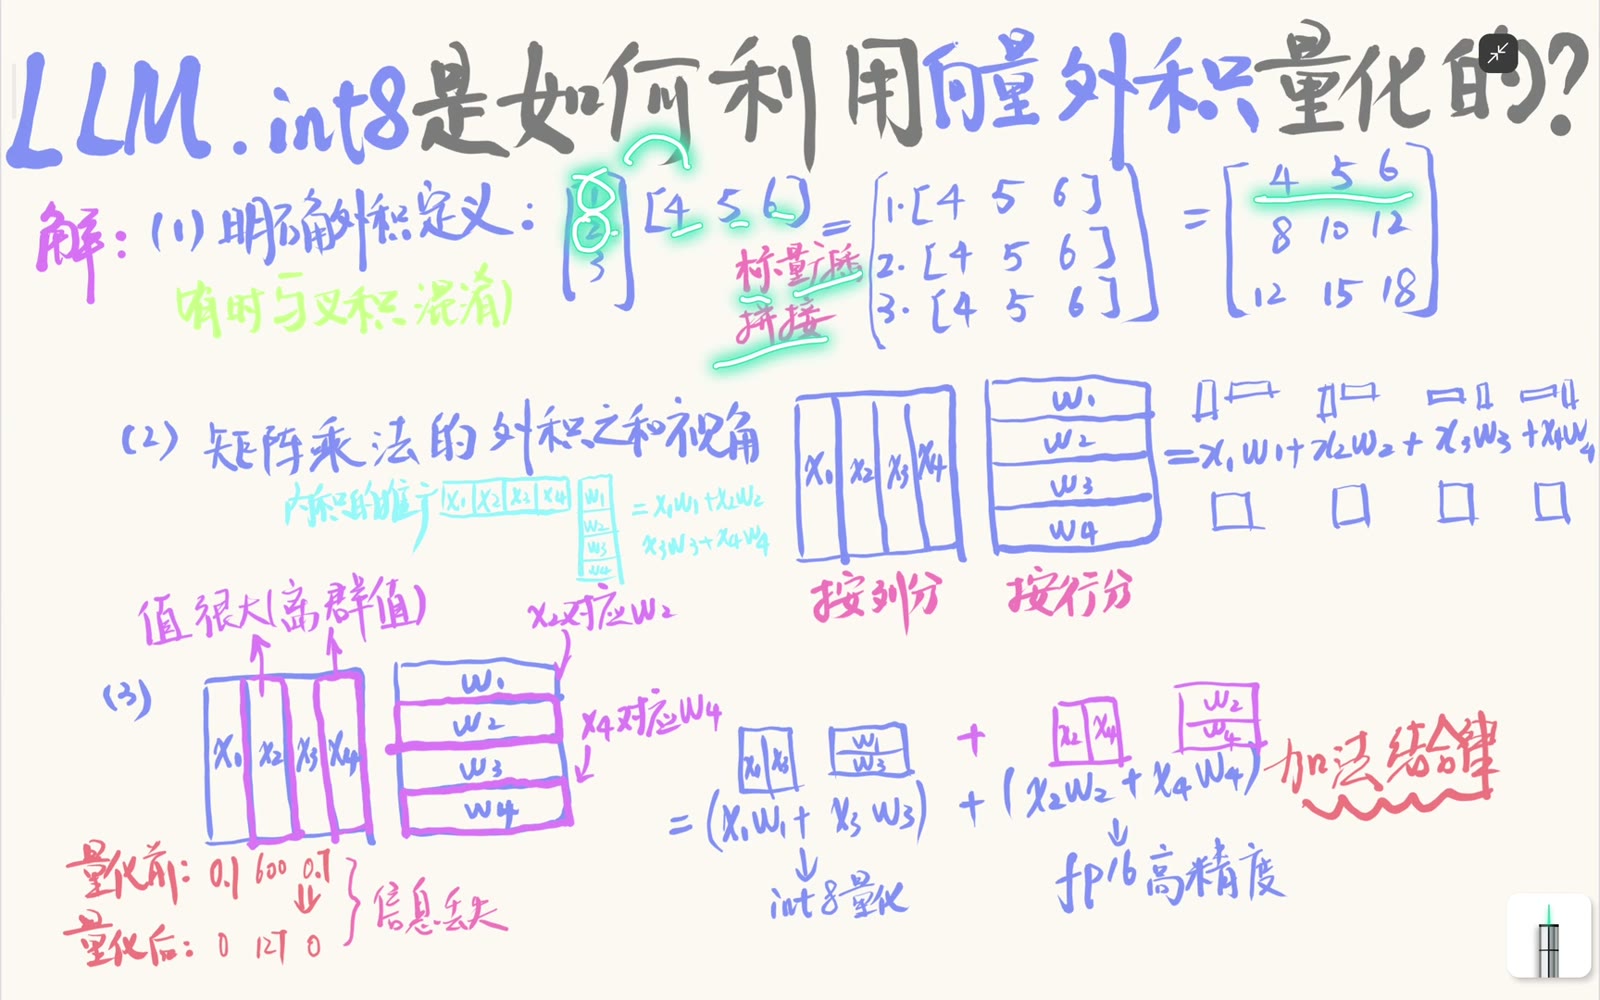 LLM.int8是如何利用向量外积量化的?
解: (1) 明确外积定义: [1 2 3] [4 5 6] = [1·[4 5 6] 2·[4 5 6] 3·[4 5 6]] = [4 5 6 8 10 12 12 15 18]
有时与叉积混淆)
标量广播
拼接
(2) 矩阵乘法的外积之和视角
x1 x2 x3 x4
w1
w2
w3
w4
=x1w1+x2w2+x3w3+x4w4
按列分 按行分
内积的推广 x1 x2 x3 x4
w1
w2
w3
w4
=x1w1+x2w2
x3w3+x4w4
值很大(离群值)
x2对应w2
(3)
x1 x2 x3 x4
w1
w2
w3
w4
x4对应w4
x1 x3 w1 w3 + x2 x4 w2 w4
=(x1w1+x3w3)+(x2w2+x4w4) 加法结合律
int8量化 fp16高精度
量化前: 0.1 600 0.7
量化后: 0 127 0
信息丢失